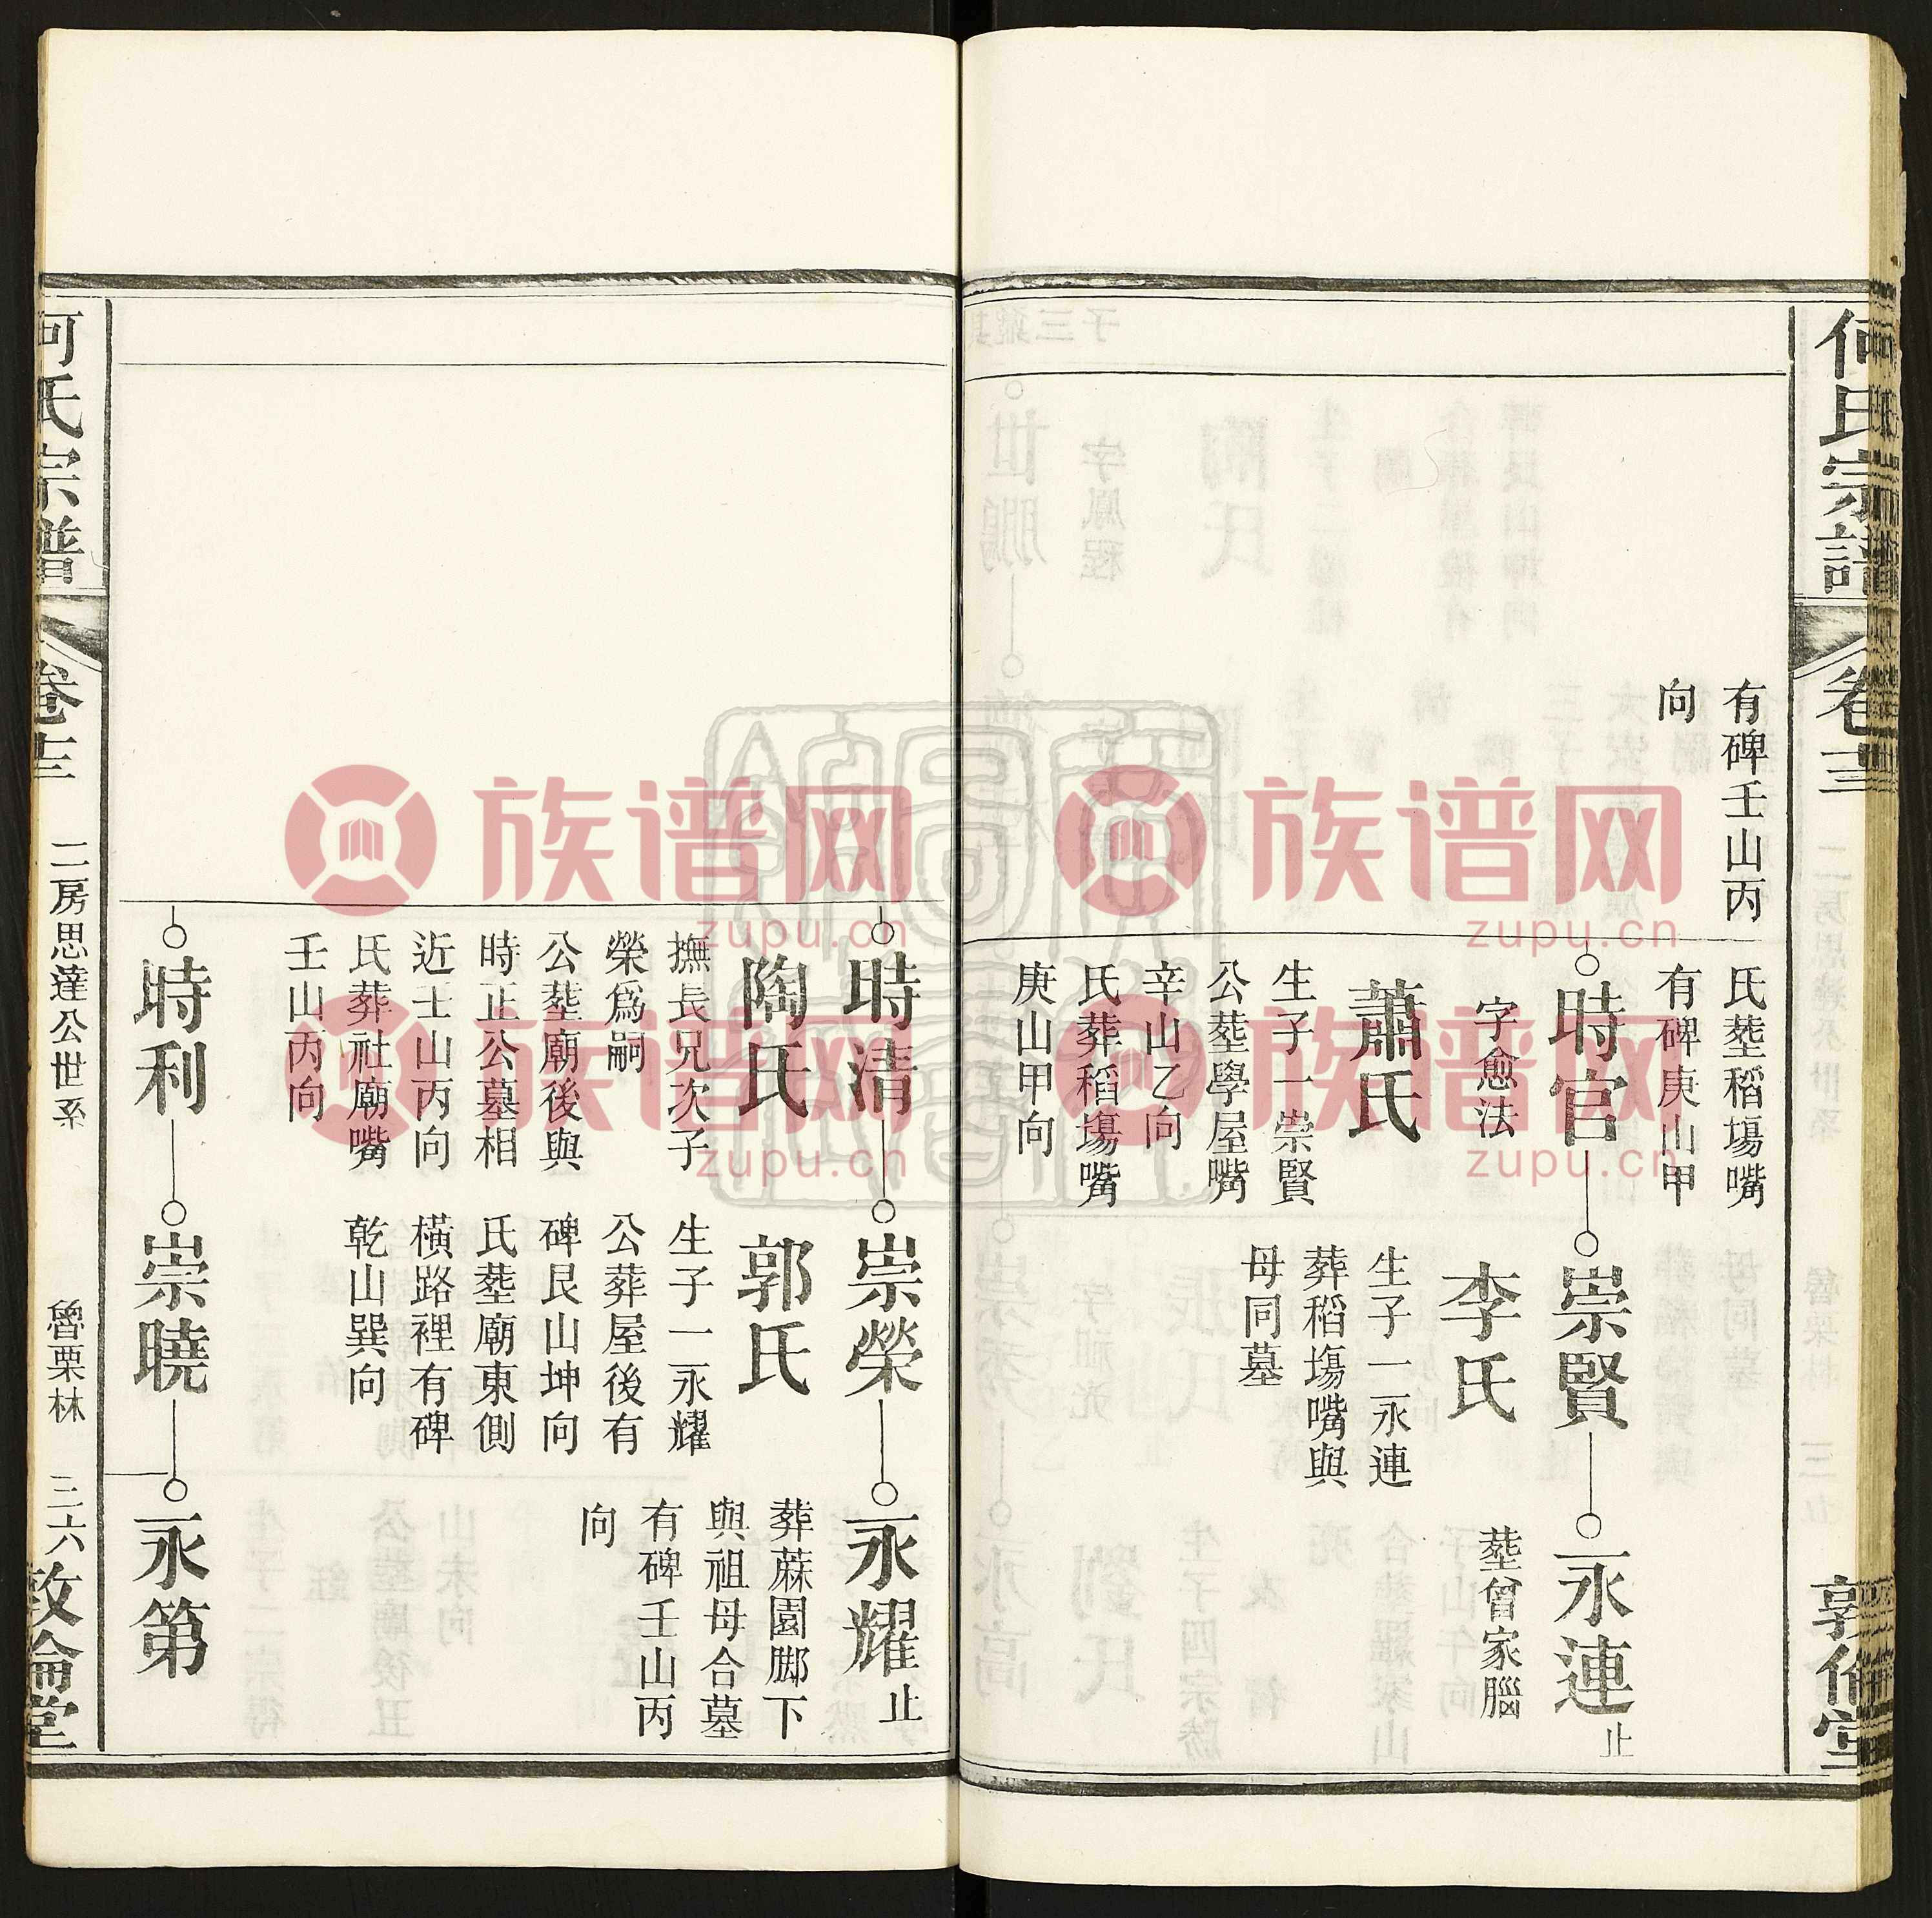 何氏宗譜
卷十三
敦倫堂
有碑壬山丙
向
氏塟稻塲嘴
有碑庚山甲
時官
字愈法
蕭氏
生子一崇賢
公塟學屋嘴
辛山乙向
氏葬稻塲嘴
庚山甲向
崇賢
李氏
生子一永連
葬稻塲嘴與
母同墓
永連止
塟曾家腦
時清
陶氏
撫長兄次子
榮爲嗣
公塟廟後與
時正公墓相
近壬山丙向
氏葬社廟嘴
壬山丙向
崇榮
郭氏
生子一永耀
公葬屋後有
碑艮山坤向
氏塟廟東側
橫路裡有碑
乾山巽向
永耀止
葬蔴園脚下
與祖母合墓
有碑壬山丙
向
時利
崇曉
永第
何氏宗譜
卷十三
二房思達公世系
魯栗林
三六
敦倫堂
族谱网
zupu.cn
族谱网
zupu.cn
族谱网
zupu.cn
族谱网
zupu.cn